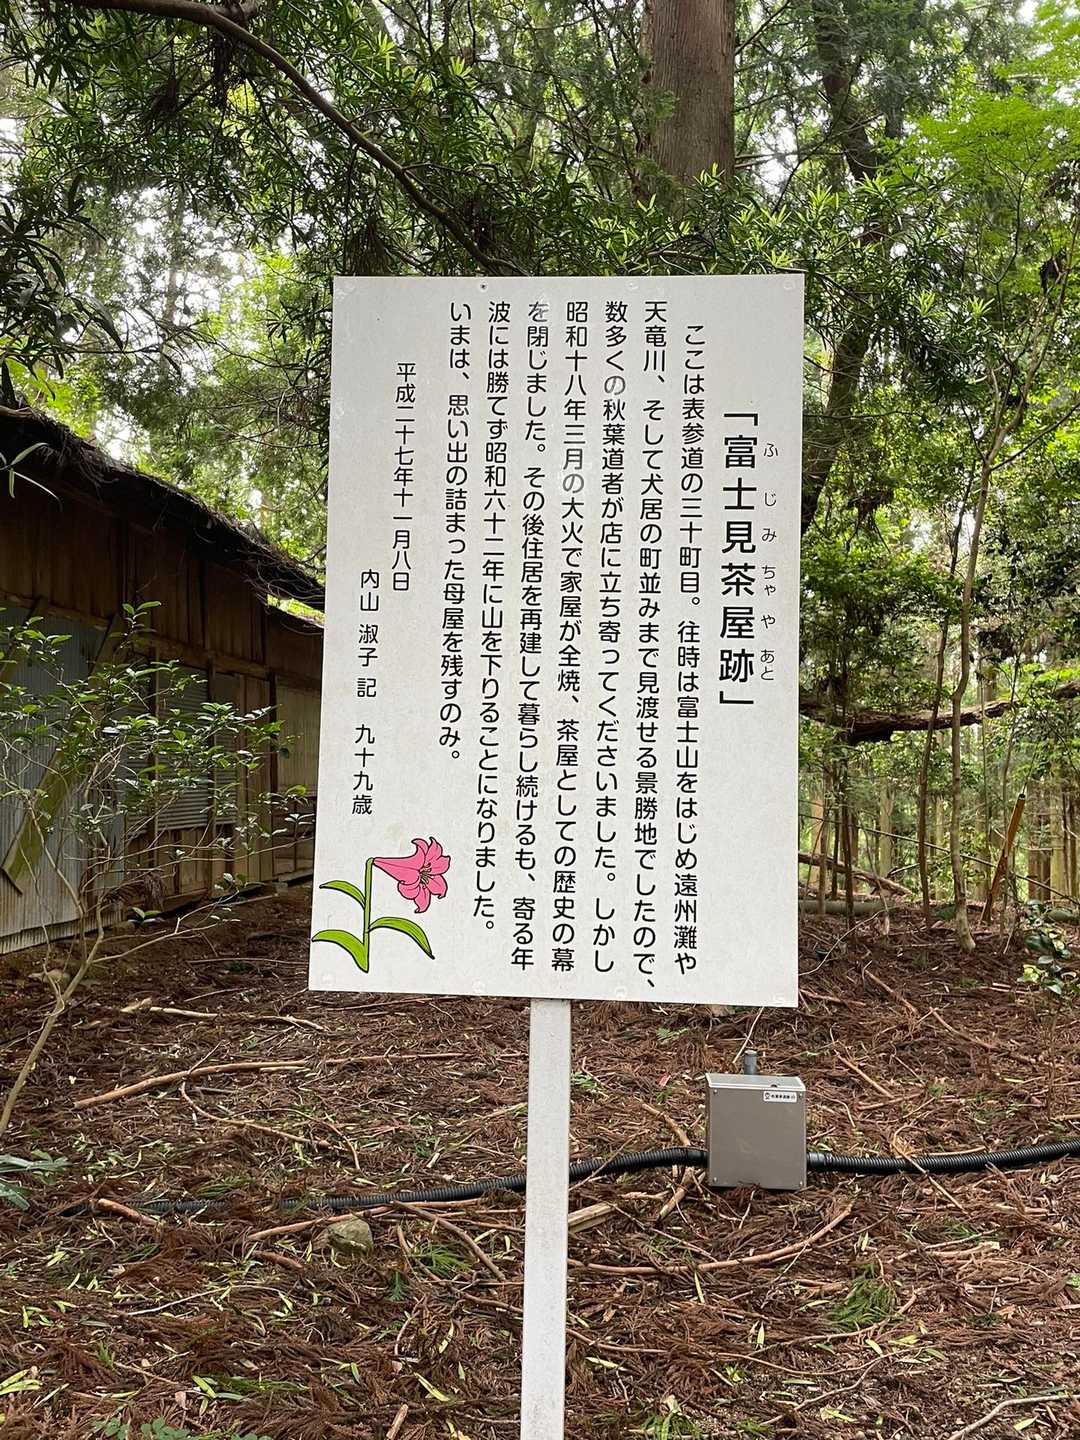 「富士見茶屋跡」
ふじみちゃやあと
ここは表参道の三十町目。往時は富士山をはじめ遠州灘や
天竜川、そして犬居の町並みまで見渡せる景勝地でしたので、
数多くの秋葉道者が店に立ち寄ってくださいました。しかし
昭和十八年三月の大火で家屋が全焼、茶屋としての歴史の幕
を閉じました。その後住居を再建して暮らし続けるも、寄る年
波には勝てず昭和六十二年に山を下りることになりました。
いまは、思い出の詰まった母屋を残すのみ。
平成二十七年十一月八日
内山 淑子 記 九十九歳